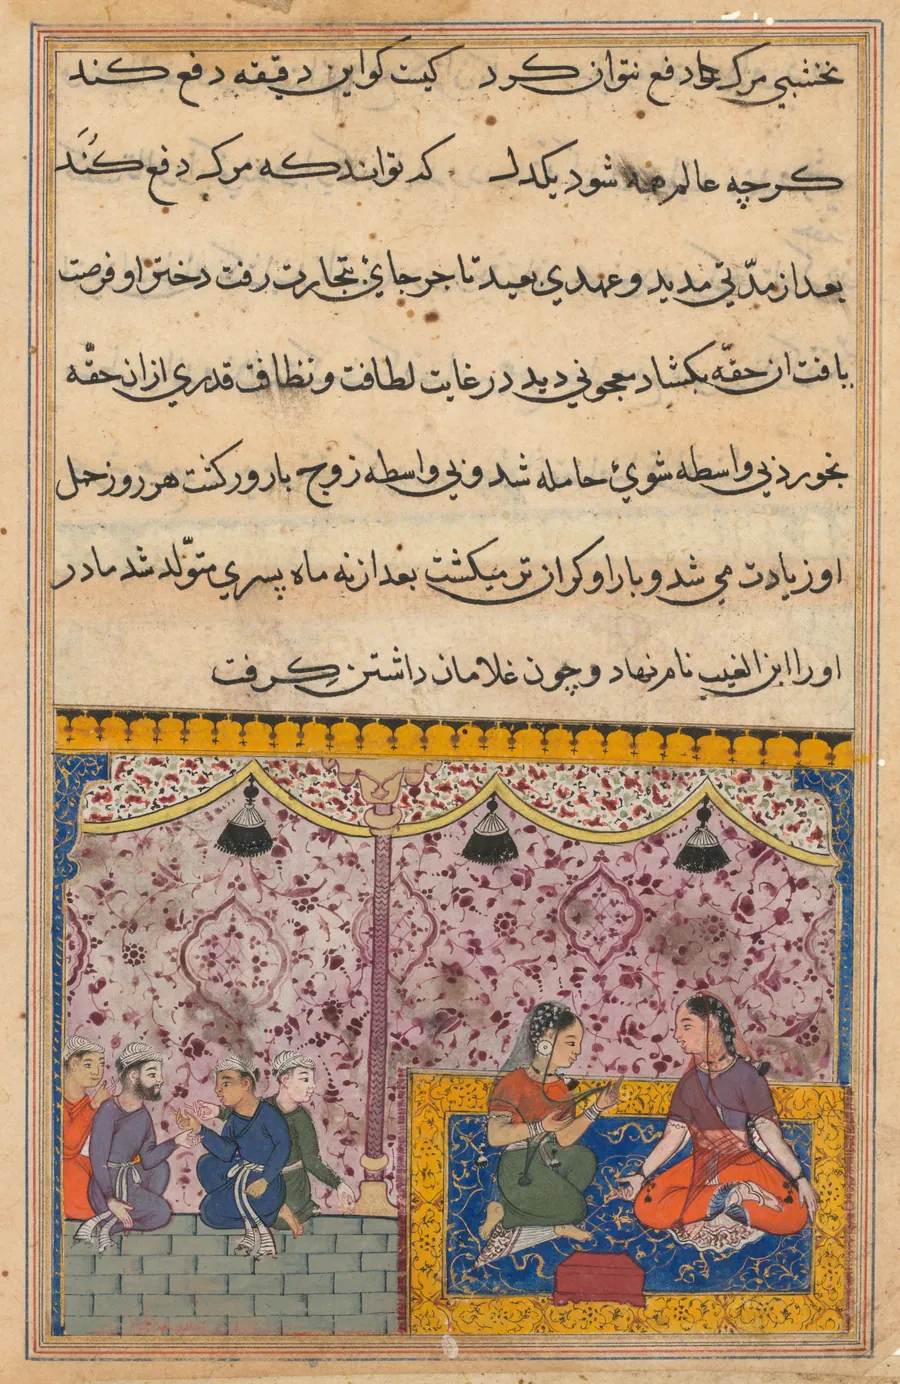 نخشبی مرک را دفع نتوان کرد کیست کو این دقیقه دفع کند
کرچه عالم همه شود یکدل که تواند که مرک دفع کُنَد
بعد از مدّتی مدید و عهدی بعید تاجر جایٔ بتجارت رفت دختر او فرصت
یافت ان حقّه بکشاد معجونی دید در غایت لطافت و نظافت قدری از ان حقّه
بخورد بی واسطه شویٔ حامله شد و بی واسطه زوج بارور کشت هر روز حمل
او زیادت می شد و بار او کران تر میکشت بعد از نه ماه پسری متوّلد شد مادر
او را ابن الغیب نام نهاد و چون غلامان داشتن کرفت